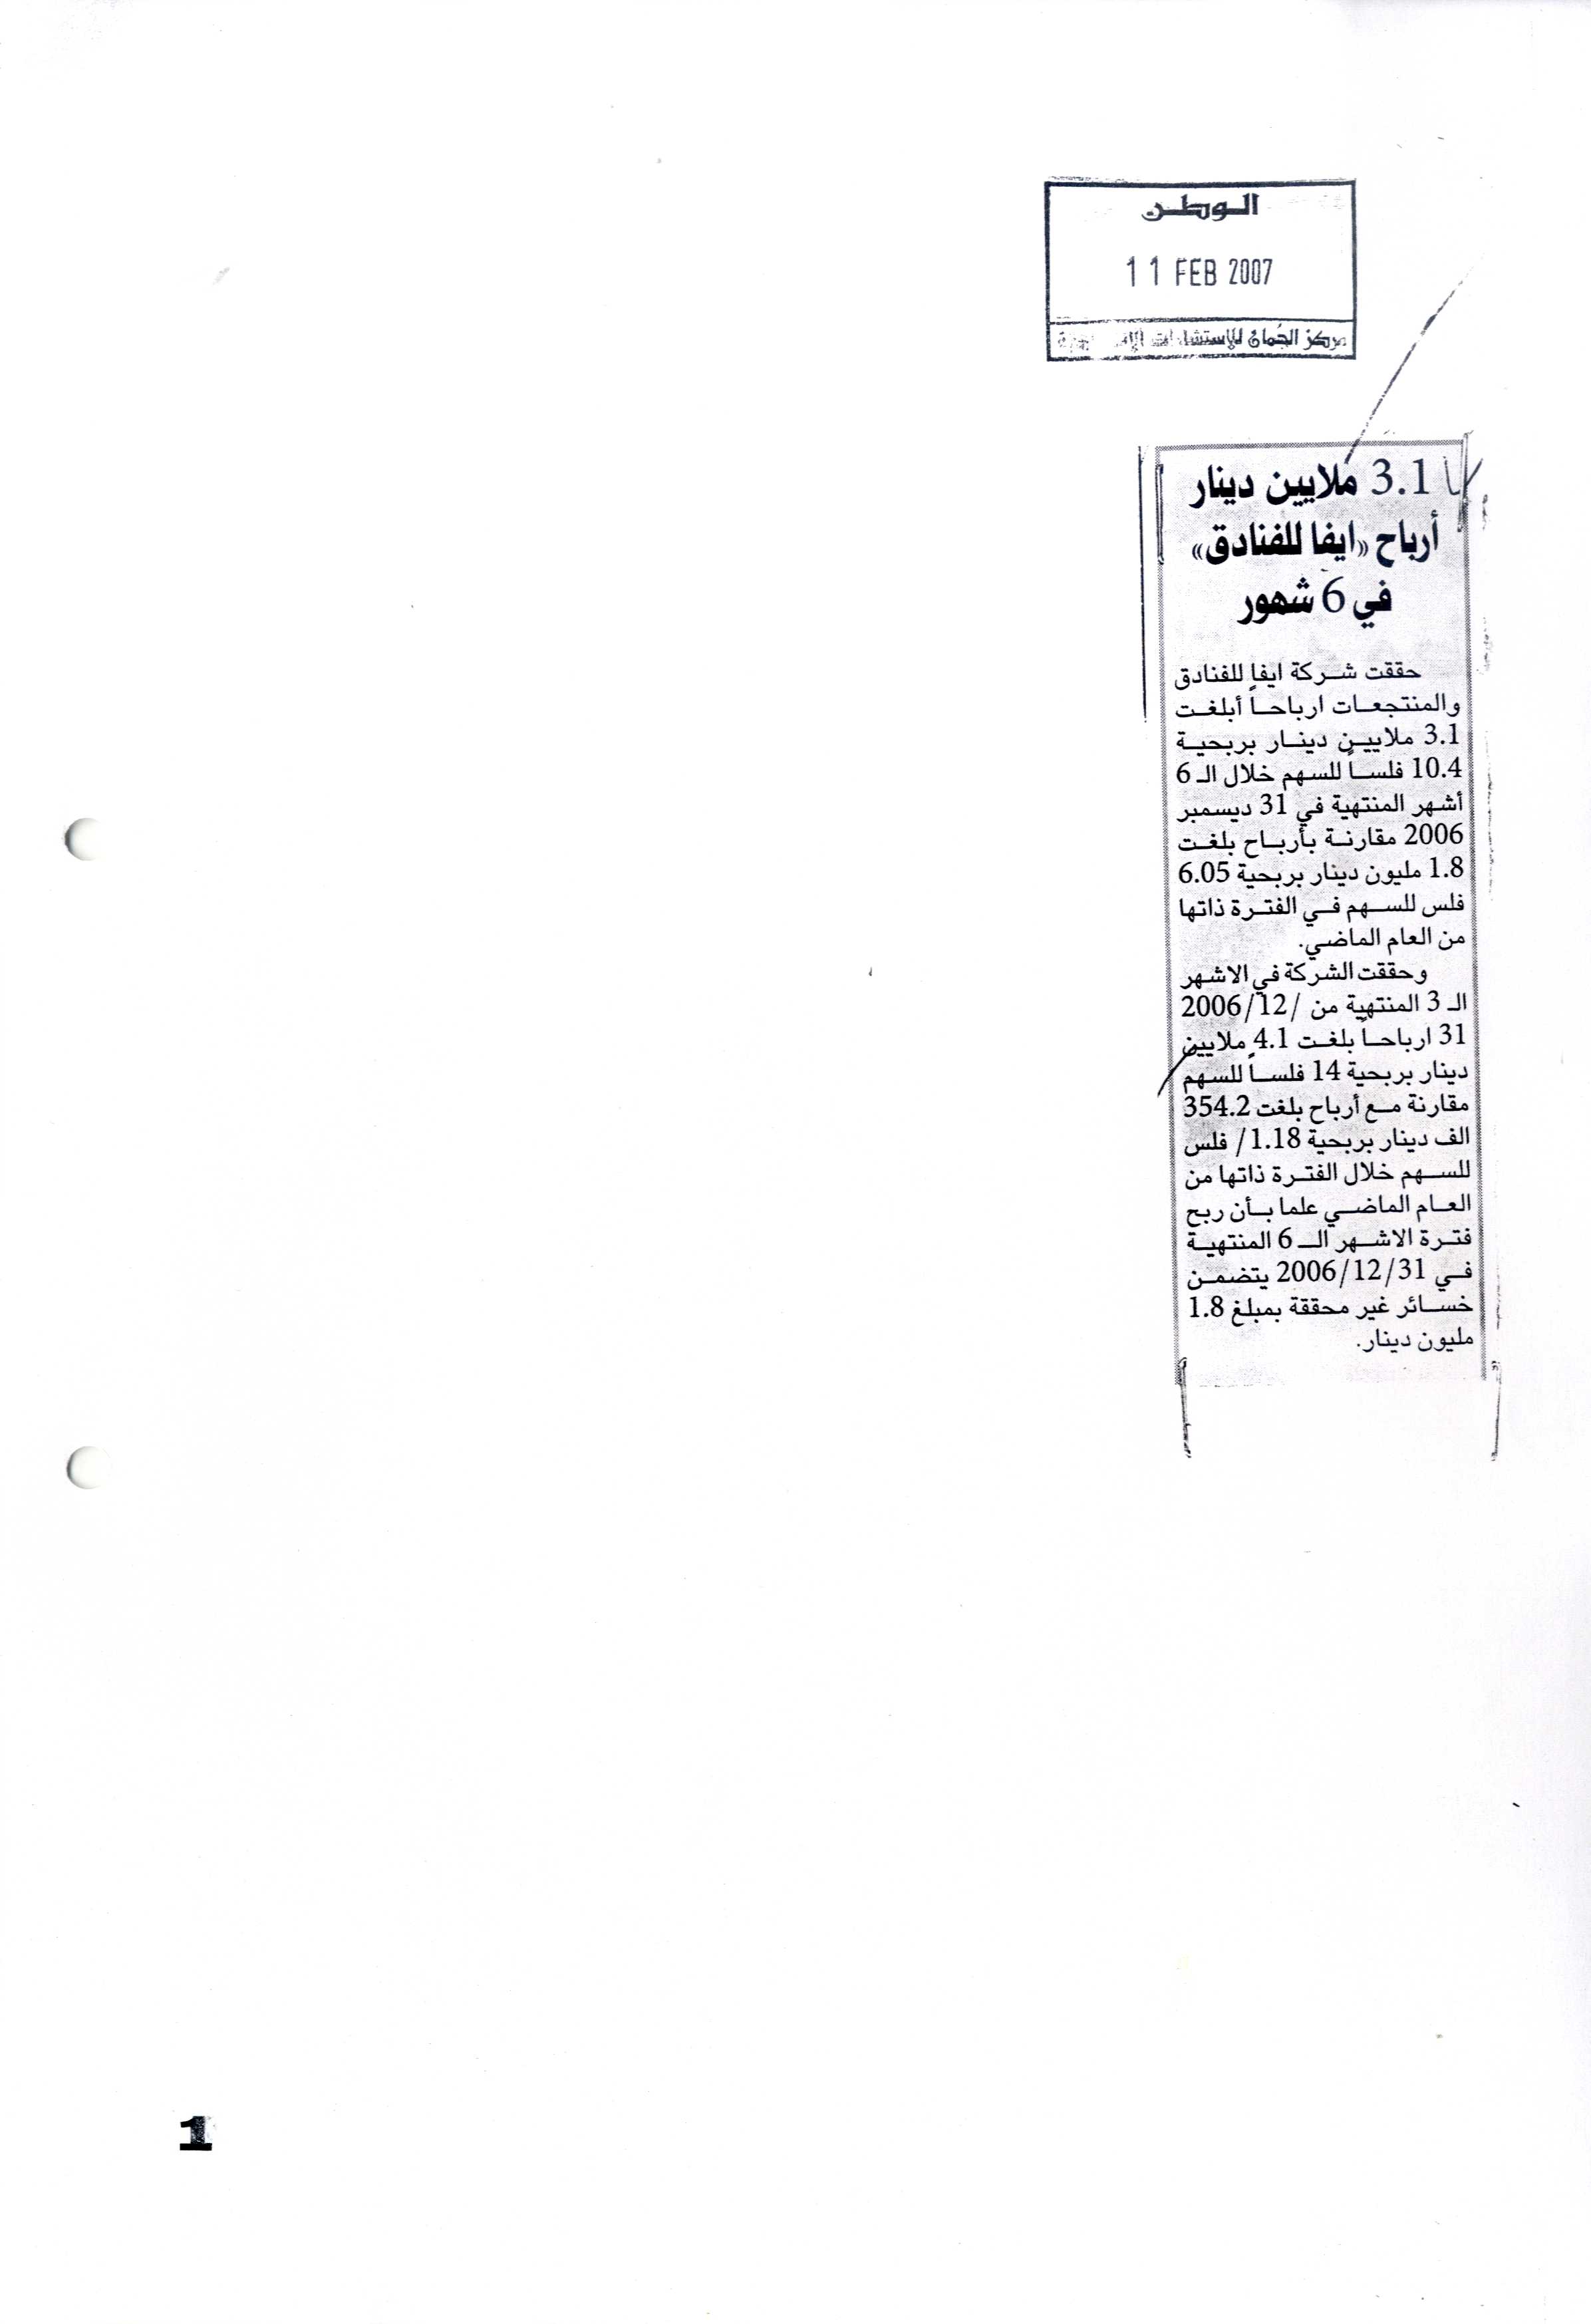 الوطن
11 FEB 2007
مركز الجُمان للإستشارات
3.1 ملايين دينار
أرباح «ايفا للفنادق»
في 6 شهور
حققت شركة ايفا للفنادق
والمنتجعات ارباحاً أبلغت
3.1 ملايين دينار بربحية
10.4 فلساً للسهم خلال الـ 6
أشهر المنتهية في 31 ديسمبر
2006 مقارنة بأرباح بلغت
1.8 مليون دينار بربحية 6.05
فلس للسهم في الفترة ذاتها
من العام الماضي.
وحققت الشركة في الاشهر
الـ 3 المنتهية من /2006/12
31 ارباحاً بلغت 4.1 ملايين
دينار بربحية 14 فلساً للسهم
مقارنة مع أرباح بلغت 354.2
الف دينار بربحية 1.18/ فلس
للسهم خلال الفترة ذاتها من
العام الماضي علما بأن ربح
فترة الاشهر الـ 6 المنتهية
في 2006/12/31 يتضمن
خسائر غير محققة بمبلغ 1.8
مليون دينار.
1